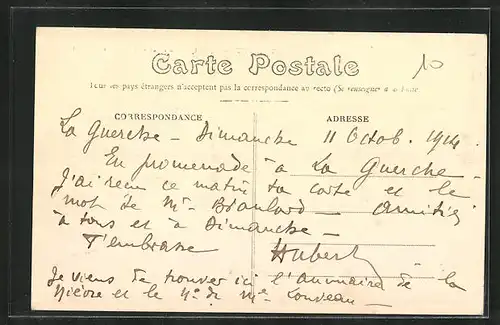 10
Carte Postale
Tous les pays étrangers n'acceptent pas la correspondance au recto (Se renseigner à la Poste
CORRESPONDANCE
ADRESSE
La Guerche - Dimanche 11 Octob. 1914.
En promenade à La Guerche -
J'ai reçu ce matin ta carte et le
mot de Mr Braulard - Amitiés
à tous et à Dimanche -
T'embrasse Hubert
Je viens de trouver ici l'annuaire de la
Nièvre et le No de Me Louveau -